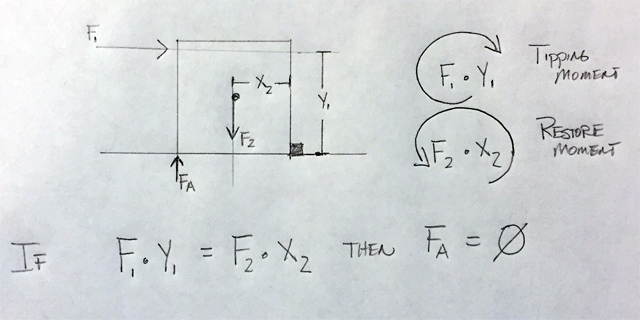 F₁
X₂
Y₁
F₂
F_A
F₁ · Y₁
TIPPING
MOMENT
F₂ · X₂
RESTORE
MOMENT
IF F₁ · Y₁ = F₂ · X₂ THEN F_A = Ø